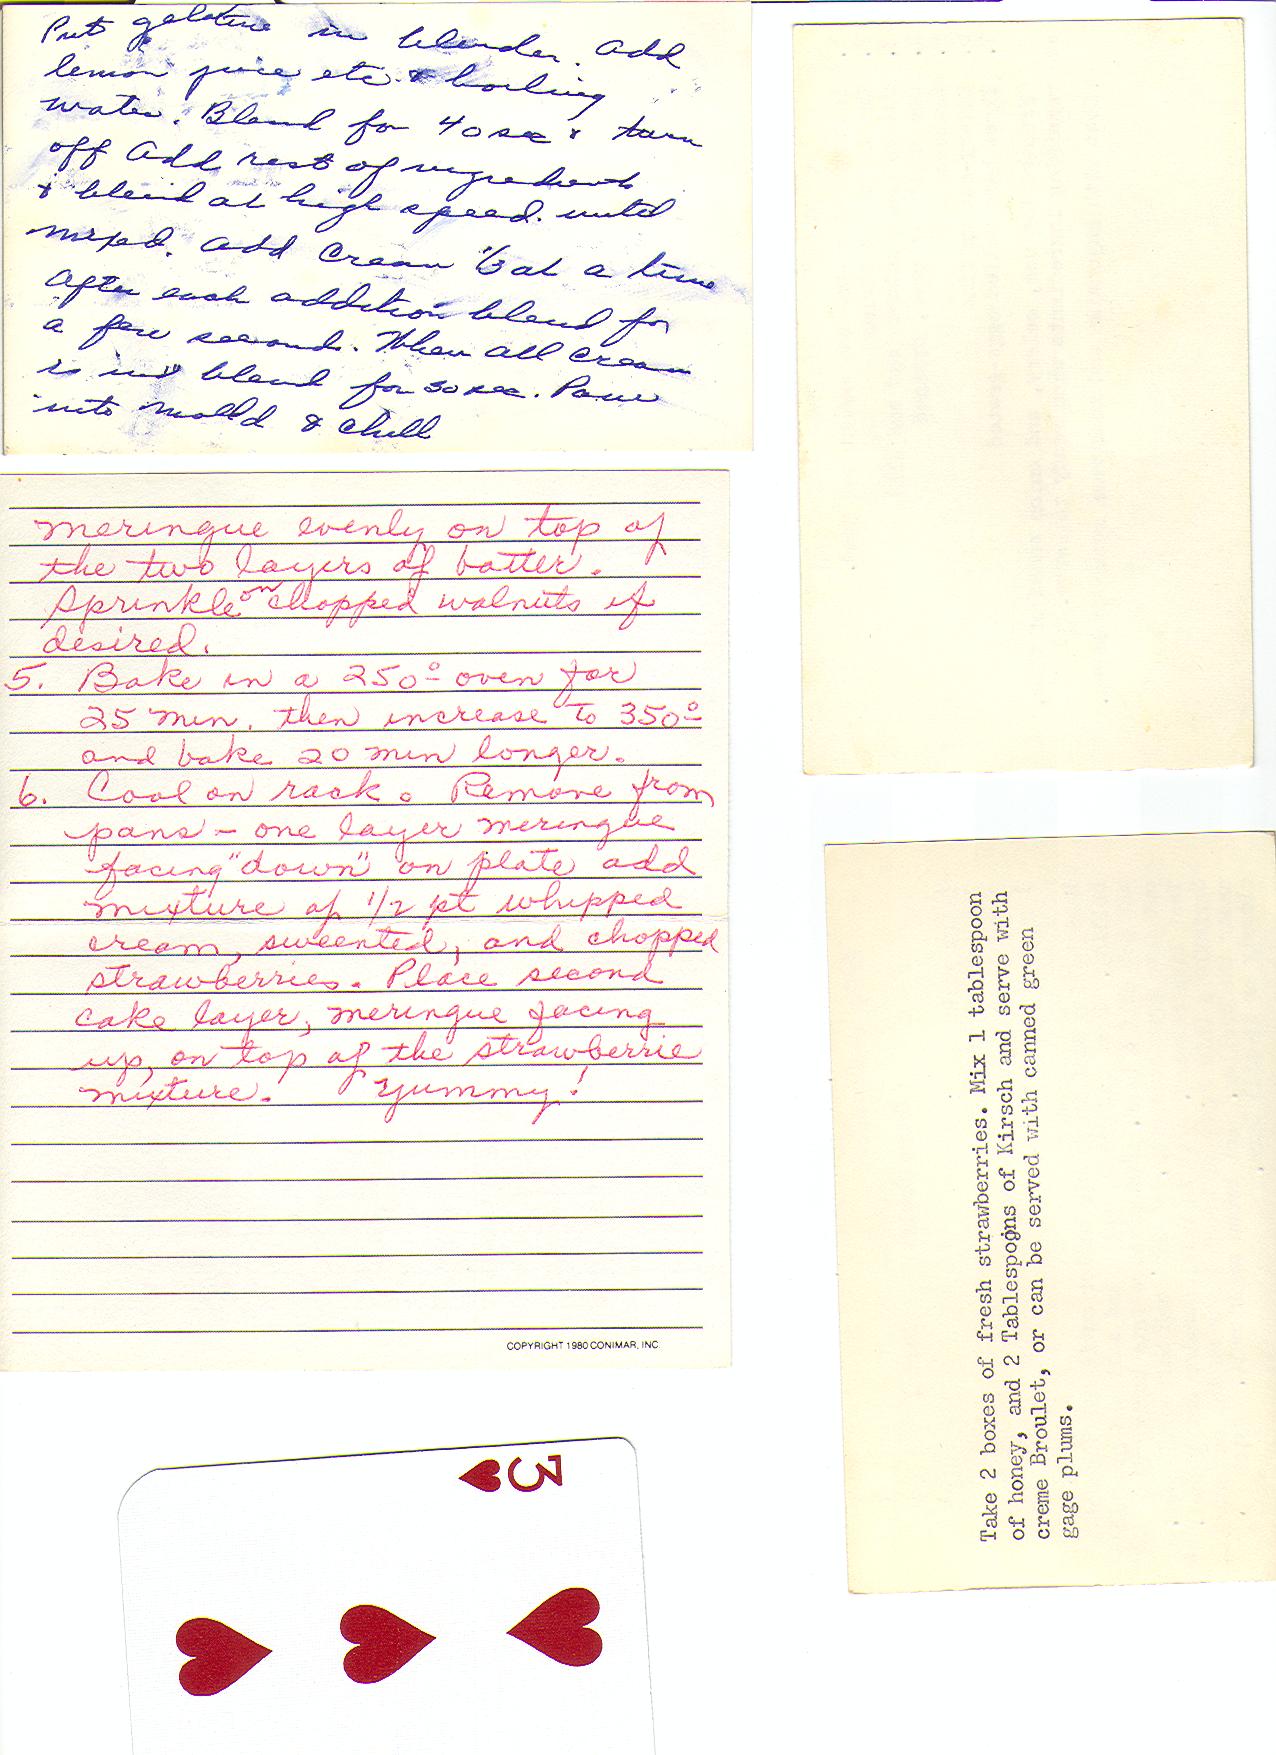 Put gelatine in blender. Add
lemon juice etc & boiling
water. Blend for 40 sec & turn
off Add rest of ingredients
& blend at high speed. until
mixed. Add Cream 1/3 at a time
After each addition blend for
a few second. When all cream
is in & blend for 30 sec. Pour
into molld & chill
meringue evenly on top of
the two layers of batter.
Sprinkle on chopped walnuts if
desired.
5. Bake in a 250° oven for
25 min. then increase to 350°
and bake 20 min longer.
6. Cool on rack. Remove from
pans - one layer meringue
facing "down" on plate add
mixture of 1/2 pt whipped
cream, sweented, and chopped
strawberries. Place second
cake layer, meringue facing
up, on top of the strawberrie
mixture. Yummy!
COPYRIGHT 1980 CONIMAR, INC.
3
Take 2 boxes of fresh strawberries. Mix 1 tablespoon
of honey, and 2 Tablespoons of Kirsch and serve with
creme Broulet, or can be served with canned green
gage plums.